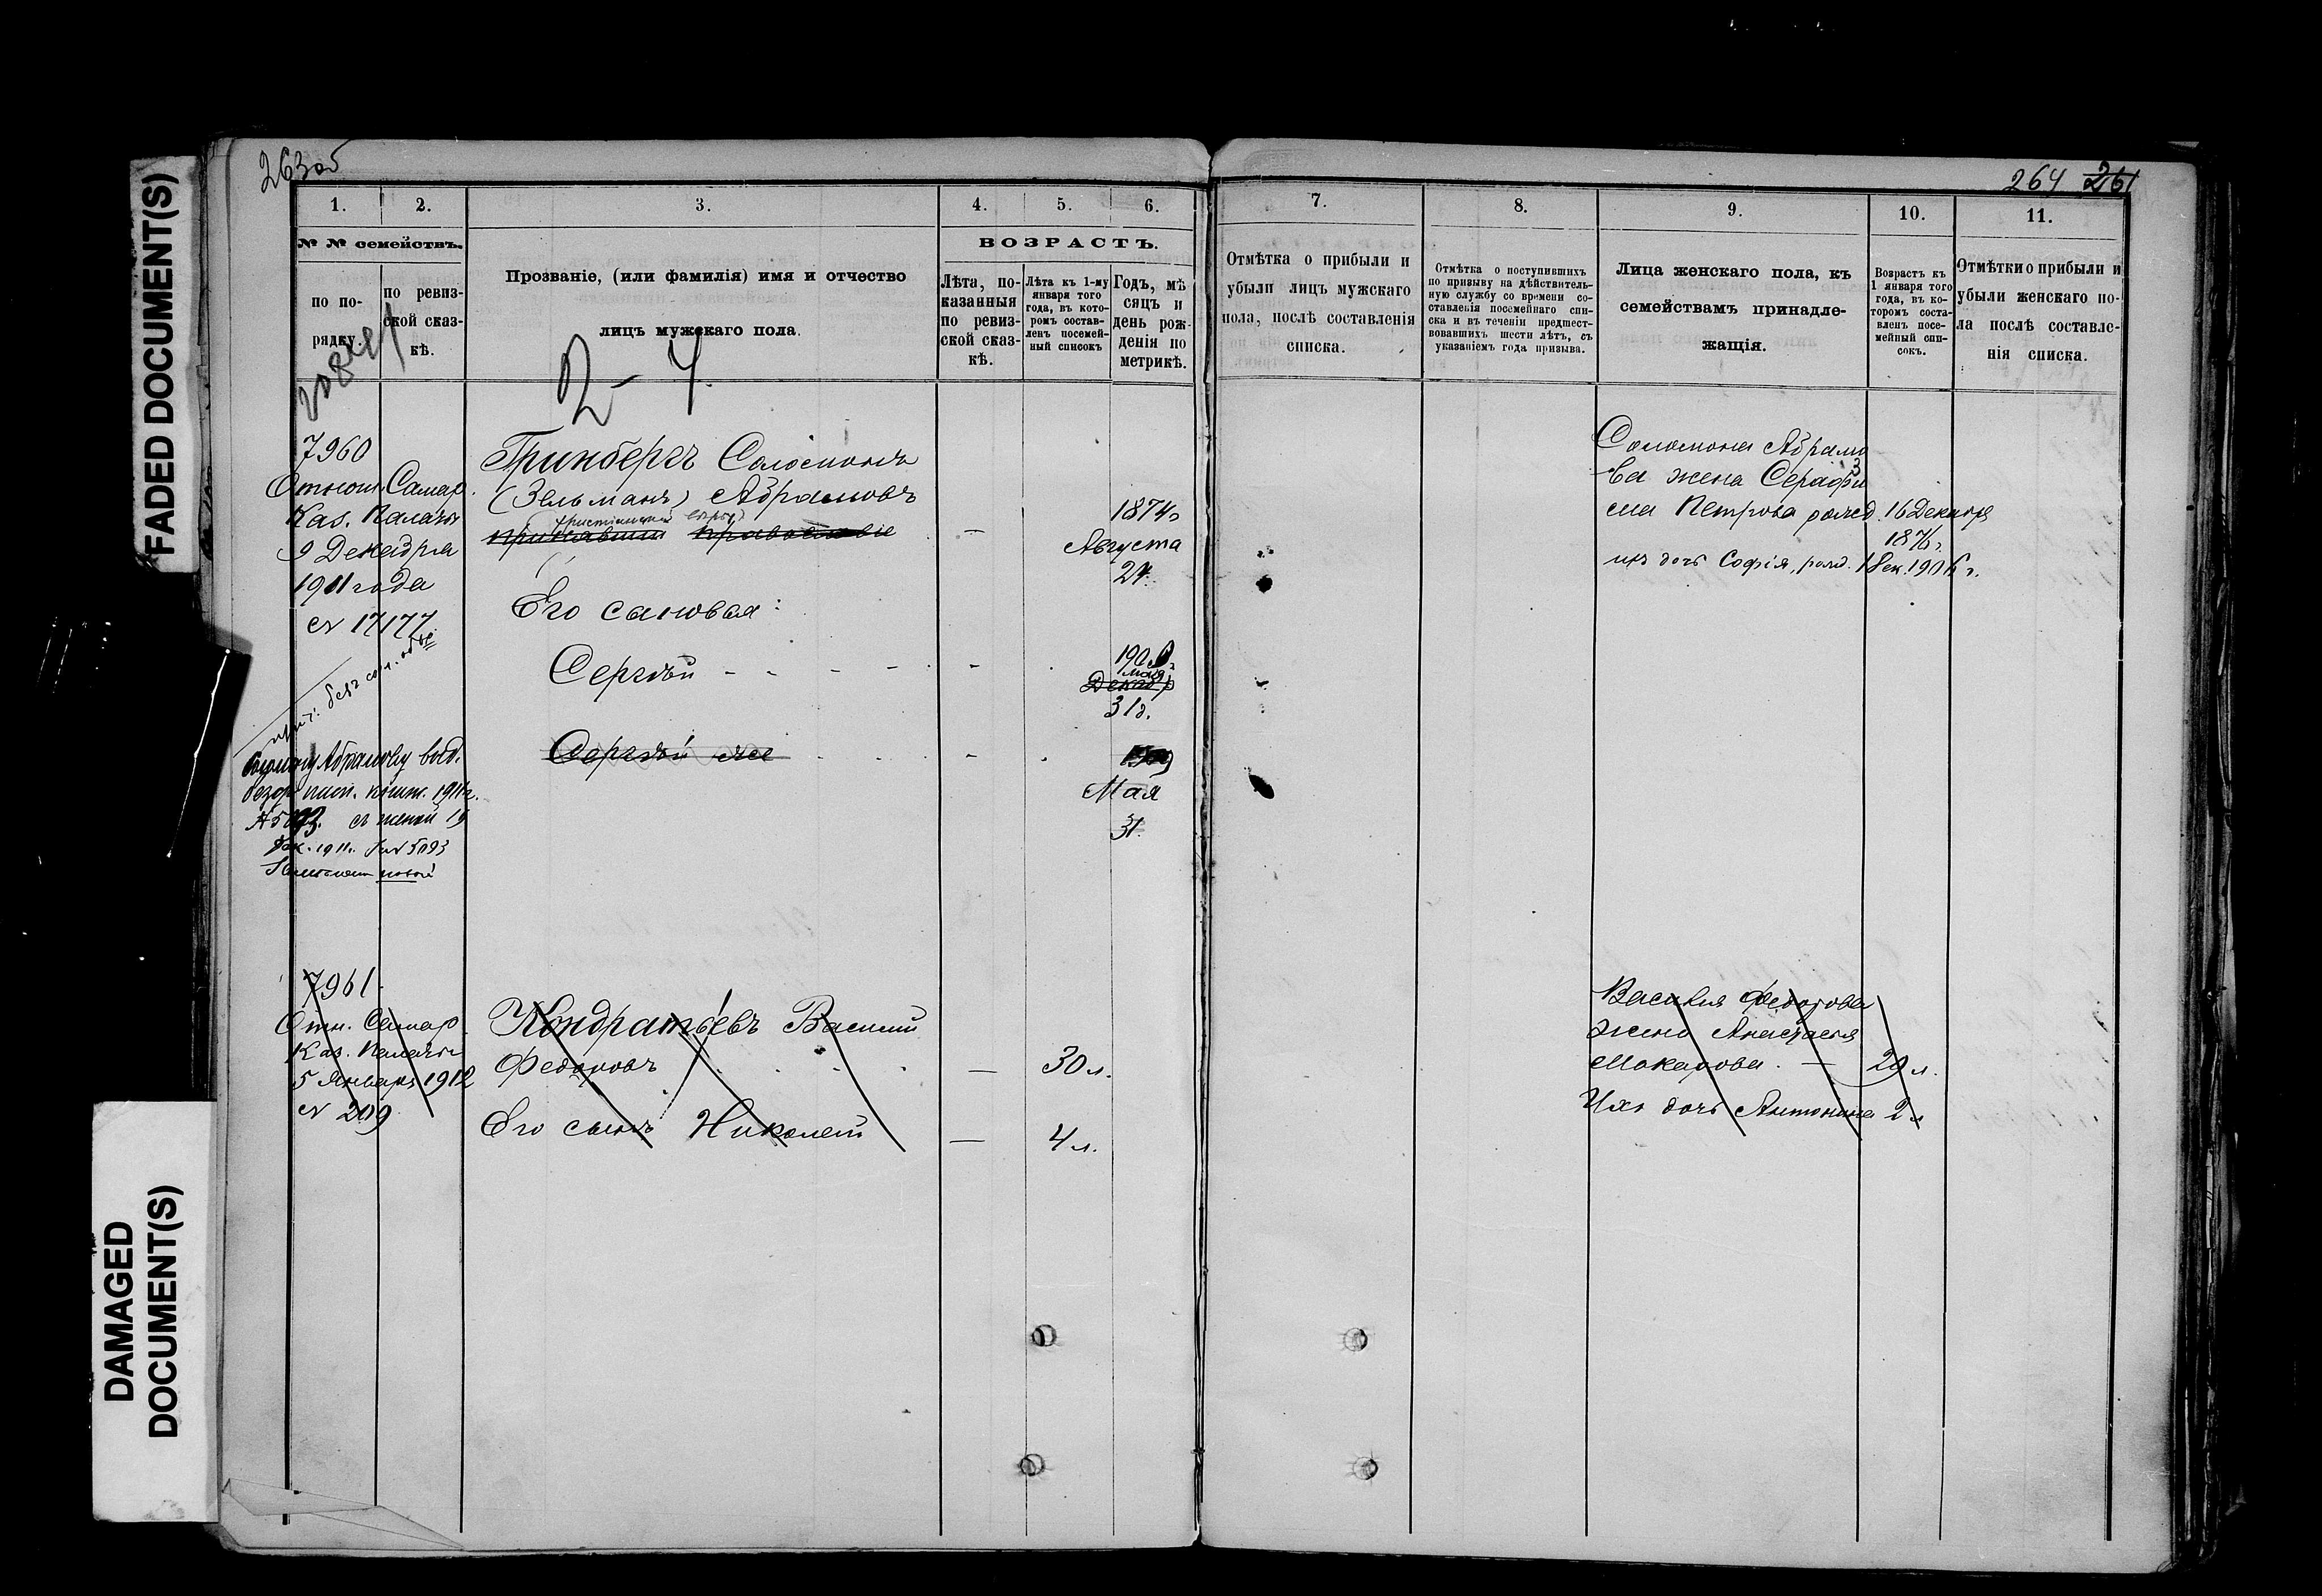 FADED DOCUMENT(S)
DAMAGED
DOCUMENT(S)
263 об
264 261
1.
2.
3.
4.
5.
6.
7.
8.
9.
10.
11.
№ № семействъ.
по по-
рядку.
по ревиз-
ской сказ-
кѣ.
Прозваніе, (или фамилія) имя и отчество
лицъ мужскаго пола.
ВОЗРАСТЪ.
Лѣта, по-
казанныя
по ревиз-
ской сказ-
кѣ.
Лѣта къ 1-му
января того
года, въ кото-
ромъ состав-
ленъ посемей-
ный списокъ
Годъ, мѣ
сяцъ и
день рож-
денія по
метрикѣ.
Отмѣтка о прибыли и
убыли лицъ мужскаго
пола, послѣ составленія
списка.
Отмѣтка о поступившихъ
по призыву на дѣйствитель-
ную службу со времени со-
ставленія посемейнаго спи-
ска и въ теченіи предшест-
вовавшихъ шести лѣтъ, съ
указаніемъ года призыва.
Лица женскаго пола, къ
семействамъ принадле-
жащія.
Возрастъ къ
1 января того
года, въ ко-
торомъ соста-
вленъ посе-
мейный спи-
сокъ.
Отмѣтки о прибыли и
убыли женскаго по-
ла послѣ составле-
нія списка.
7960
Отнош. Самар.
Каз. Палаты
9 Декабря
1911 года
№ 17177
Гринбергъ Соломонъ
(Зельманъ) Абрамовъ
принявшій православіе
1874 г
Августа
Его сыновья:
Сергѣй
Мая
Декаб
31 д.
Сергѣй же
Мая
31.
Соломона Абрамо
ва жена Серафи
ма Петрова рожд. 16 Декабря
1876 г.
ихъ дочь Софія, рожд. 1 Дек. 1906 г.
Абрамову выд.
1911 г.
съ женой 19
Дек. 1911 г. 5093
7961.
Отн. Самар.
Каз. Палаты
5 Января 1912
№ 209
Кондратьевъ Василій
Федоровъ — 30 л.
Его сынъ Николай — 4 л.
Василія Федорова
жена Анастасія
Макарова. — 29 л.
Ихъ дочь Антонина 2 л